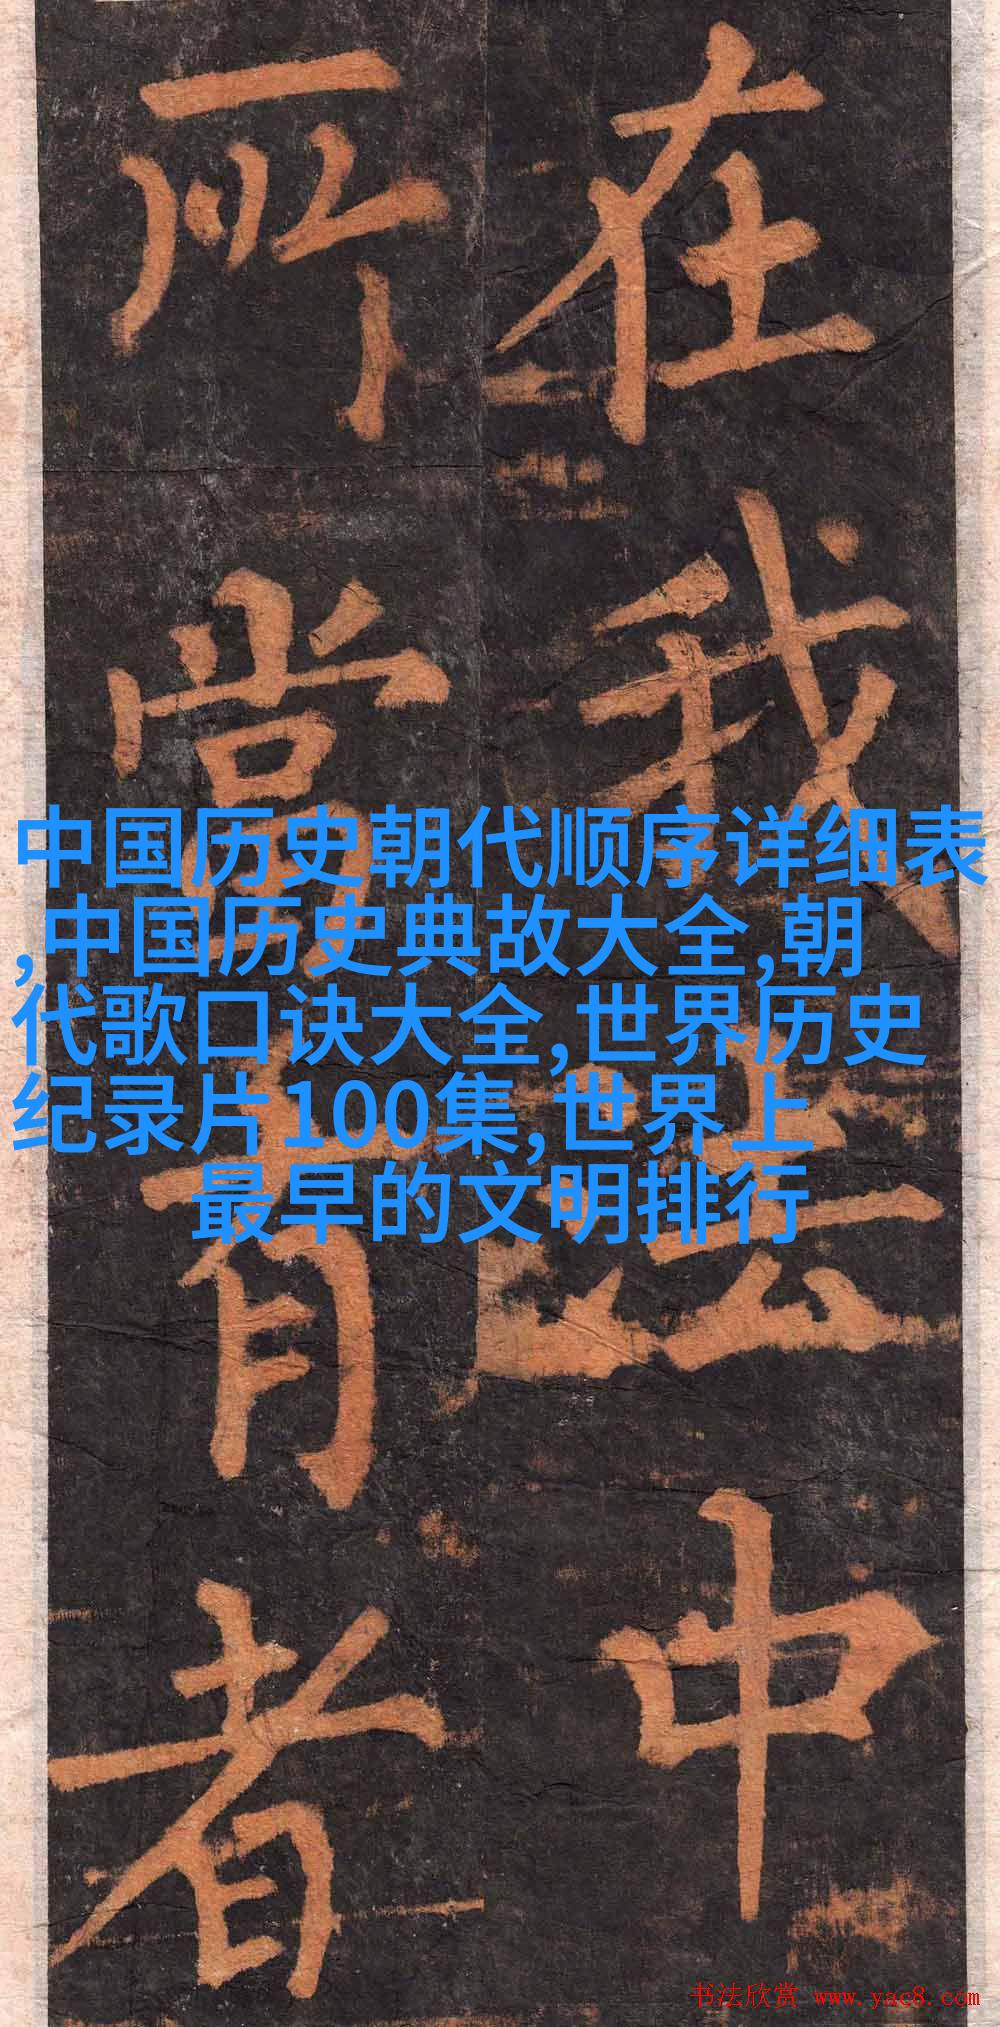 在我法中
所當有者
中国历史朝代顺序详细表
,中国历史典故大全,朝
代歌口诀大全,世界历史
纪录片100集,世界上
最早的文明排行
书法欣赏 www.yac8.com